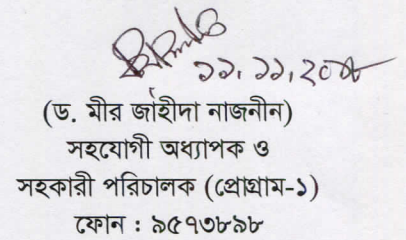 ১১.১১.২০১৮
(ড. মীর জাহীদা নাজনীন)
সহযোগী অধ্যাপক ও
সহকারী পরিচালক (প্রোগ্রাম-১)
ফোন : ৯৫৭৩৮৯৮